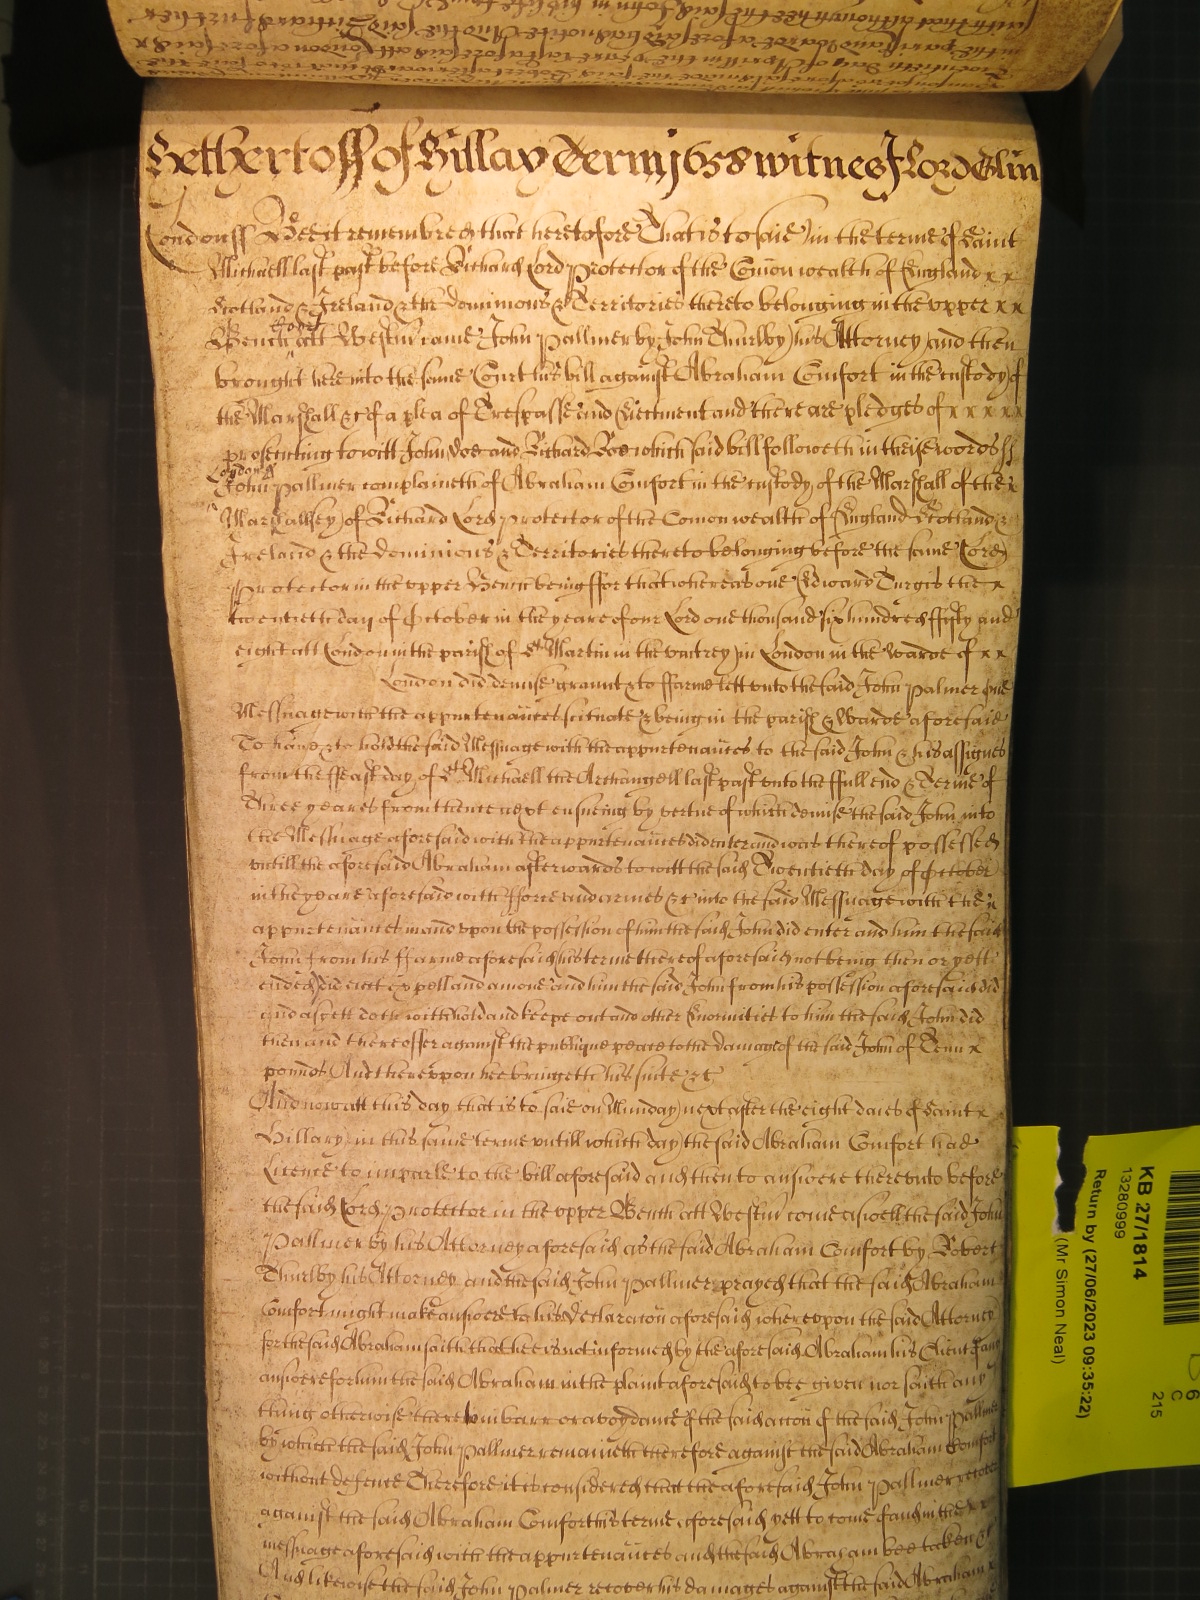 Yet her to ss of Hillary Terme 1658 witnes J Lord Glin
London ss Bee it remembred that heretofore That is to saie in the terme of Saint
Michaell last past before Richard Lord Protector of the Comon wealth of England x x
Scotland & Ireland & the dominions & Territories thereto belonging in the upper x x
Bench att Westmr came John Pallmer by John Thurlby his Attorney and then
brought here into the same Court his bill against Abraham Comfort in the custody of
the Marshall &c of a plea of Trespasse and Eiectment and there are pledges of x x x x
prosecuting to witt John Doe and Richard Roe which said bill followeth in theise words ss
London ss
John Pallmer complaineth of Abraham Comfort in the custody of the Marshall of the x
Marshallsey of Richard Lord Protector of the Comon wealth of England Scotland &
Ireland & the dominions & Territories thereto belonging before the same Lord
Protector in the upper Bench being ffor that whereas one Edward Turgis the x
twentieth day of October in the yeare of our Lord one thousand six hundred ffifty and
eight att London in the parish of St Martin in the vintrey in London in the warde of x x
London did demise graunt & to ffarme lett unto the said John Palmer one
Messuage with the appurtenaunces scituate & being in the parish & Warde aforesaid
To have & to hold the said Messuage with the appurtenaunces to the said John & his assignes
from the ffeast day of St Michaell the Archangell last past unto the ffull end & Terme of
Three yeares from thence next ensueing by vertue of which demise the said John into
the Messuage aforesaid with the appurtenaunces did enter and was thereof possessed
untill the aforesaid Abraham afterwards to witt the said Twentieth day of October
in the yeare aforesaid with fforce and armes &c into the said Messuage with the x
appurtenaunces in and upon the possession of him the said John did enter and him the said
John from his ffarme aforesaid his terme thereof aforesaid not being then or yett
ended did eiect expell and amove and him the said John from his possession aforesaid did
and as yett doth withhold and keepe out and other Enormities to him the said John did
then and there offer against the publique peace to the damage of the said John of Tenn x
pounds And thereupon hee bringeth his suite &c
And now att this day that is to saie on Munday next after the eight daies of Saint x
Hillary in this same terme untill which day the said Abraham Comfort had
Licence to imparle to the bill aforesaid and then to answere thereunto before
the said Lord Protector in the upper Bench att Westmr come aswell the said John
Pallmer by his Attorney aforesaid as the said Abraham Comfort by Robert
Thurlby his Attorney and the said John Pallmer prayed that the said Abraham
Comfort might make answere to his declaracion aforesaid whereupon the said Attorney
for the said Abraham saith that hee is not informed by the aforesaid Abraham his Client of any
answere for him the said Abraham in the plaint aforesaid to bee given nor saith any
thing otherwise there in barr or avoydance of the said accion of the said John Pallmer
by which the said John Pallmer remaineth therefore against the said Abraham Comfort
without defence Therefore it is considered that the aforesaid John Pallmer recover
against the said Abraham Comfort his terme aforesaid yett to come of and in the x x
messuage aforesaid with the appurtenaunces and the said Abraham bee taken &c
And likewise the said John Palmer recover his damages against the said Abraham x
KB 27/1814
13280999
Return by (27/06/2023 09:35:22)
(Mr Simon Neal)
6
C
215